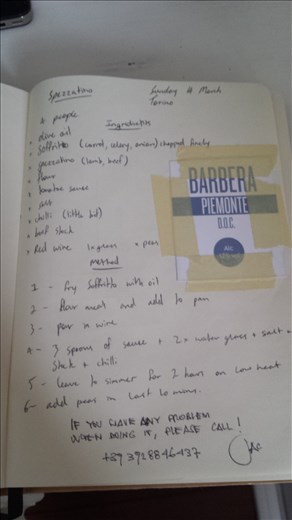 Spezzatino
Sunday 4 March
Torino
4 people
Ingredients
• olive oil
• Soffritto (carrot, celery, onion) chopped finely
• spezzatino (lamb, beef)
• flour
• tomatoe sauce
• salt
• chilli (little bit)
• beef stock
• Red wine
Method
1 - fry soffritto with oil
2 - flour meat and add to pan
3 - pour in wine
4 - 3 spoons of sauce + 2x water glass + salt +
stock + chilli
5 - leave to simmer for 2 hours on low heat
6 - add peas in last 10 mins.
IF YOU HAVE ANY PROBLEM
WHEN DOING IT, PLEASE CALL!
BARBERA
PIEMONTE
D.O.C.